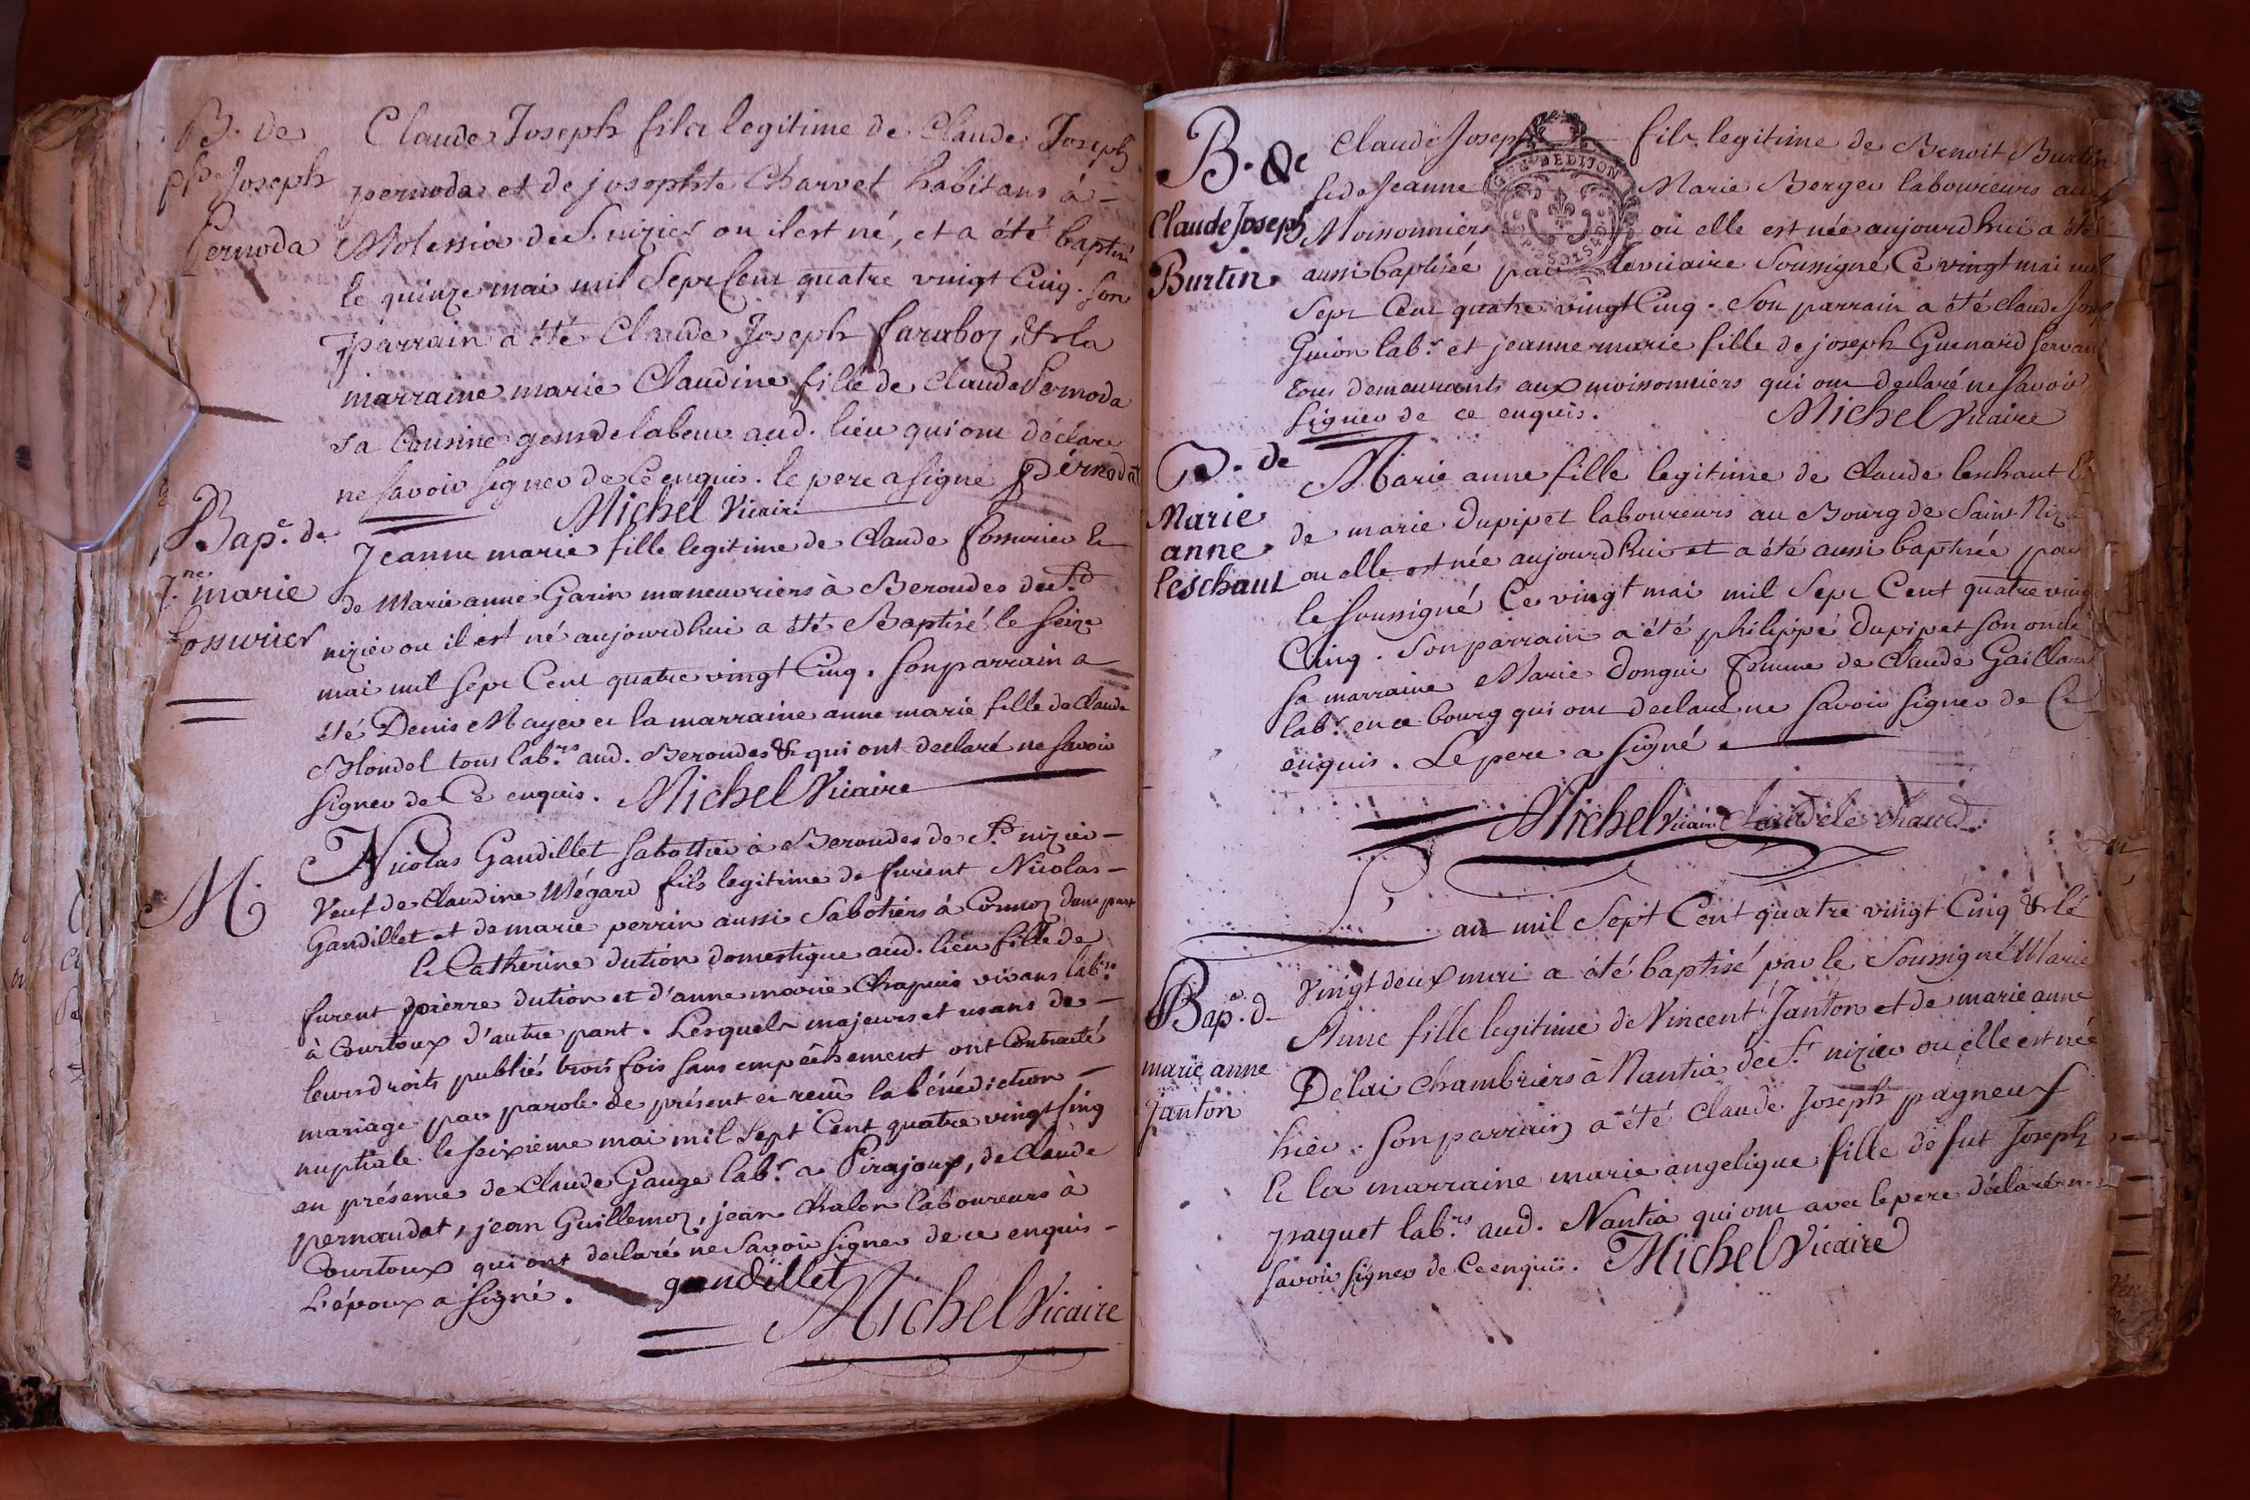 B. de
Joseph
Pernoda
Claude Joseph fils legitime de Claude Joseph
pernoda et de josephte Charvet habitans à
de S. nizier ou il est né, et a été baptisé
le quinze mai mil Sept Cent quatre vingt Cinq. son
parrain a été Claude Joseph faraboz, & la
marraine marie Claudine fille de Claude Pernoda
sa Cousine gens de labeur aud. lieu qui ont déclaré
ne savoir signer de Ce enquis. le pere a signé Pernoda
Michel Vicaire
Bap.e de
J.ne marie
fossurier
Jeanne marie fille legitime de Claude fossurier &
de Marie anne Garin maneuvriers à Beroudes de St
nizier ou il est né aujourdhui a été Baptisé le seize
mai mil sept Cent quatre vingt Cinq. son parrain a
été Denis Mayer et la marraine anne marie fille de Claude
Blondel tous lab.rs aud. Beroudes & qui ont declaré ne savoir
signer de Ce enquis. Michel Vicaire
M.
Nicolas Gandillet sabottier à Beroudes de St. nizier
Veuf de Claudine Mégard fils legitime de furent Nicolas
Gandillet et de marie perrin aussi Sabotiers à Cormoz d'une part
& Catherine dution domestique aud. lieu fille de
furent pierre dution et d'anne marie Chapuis vivans lab.rs
à Courtoux d'autre part. Lesquels majeurs et usans de
leurs droits publiés trois fois sans empêchement ont Contracté
mariage par parole de présent et reçu la bénédiction
nuptiale le seizieme mai mil Sept Cent quatre vingt sinq
en présence de Claude Gauge lab.r a Pirajoux, de Claude
pernaudat, jean Guillemoz, jean Chalon laboureurs à
Courtoux qui ont declaré ne savoir signer de ce enquis
L'époux a signé. gandillet
Michel Vicaire
B. de
Claude Joseph
Burtin
Claude Joseph fils legitime de Benoit Burtin
& de Jeanne Marie Berger laboureurs aux
Moissonniers ou elle est née aujourdhui a été
aussi baptisée par le vicaire Soussigné Ce vingt mai mil
Sept Cent quatre vingt Cinq. Son parrain a été Claude Joseph
Guion lab.r et jeanne marie fille de joseph Guenard servante
tous demeurants aux moissonniers qui ont declaré ne savoir
signer de ce enquis. Michel Vicaire
B. de
Marie
anne
leschaut
Marie anne fille legitime de Claude leschaut &
de marie Dupipet laboureurs au Bourg de Saint Nizier
ou elle est née aujourdhui et a été aussi baptisée par
le soussigné Ce vingt mai mil Sept Cent quatre vingt
Cinq. Son parrain a été philippe Dupipet son oncle
sa marraine Marie Dongui femme de Claude Gaillard
lab.r en ce bourg qui ont declaré ne savoir signer de Ce
enquis. Le pere a signé.
Michel Vicaire Claude le chaud
L'an mil Sept Cent quatre vingt Cinq & le
Bap.e d
marie anne
Janton
Vingt deux mai a été baptisé par le Soussigné Marie
Anne fille legitime de Vincent Janton et de marie anne
Delai Chambriers à Nantia de St nizier ou elle est née
hier. son parrain a été Claude Joseph pagneux
& la marraine marie angelique fille de fut Joseph
paquet lab.rs aud. Nantia qui ont avec le pere déclaré ne
savoir signer de Ce enquis. Michel Vicaire